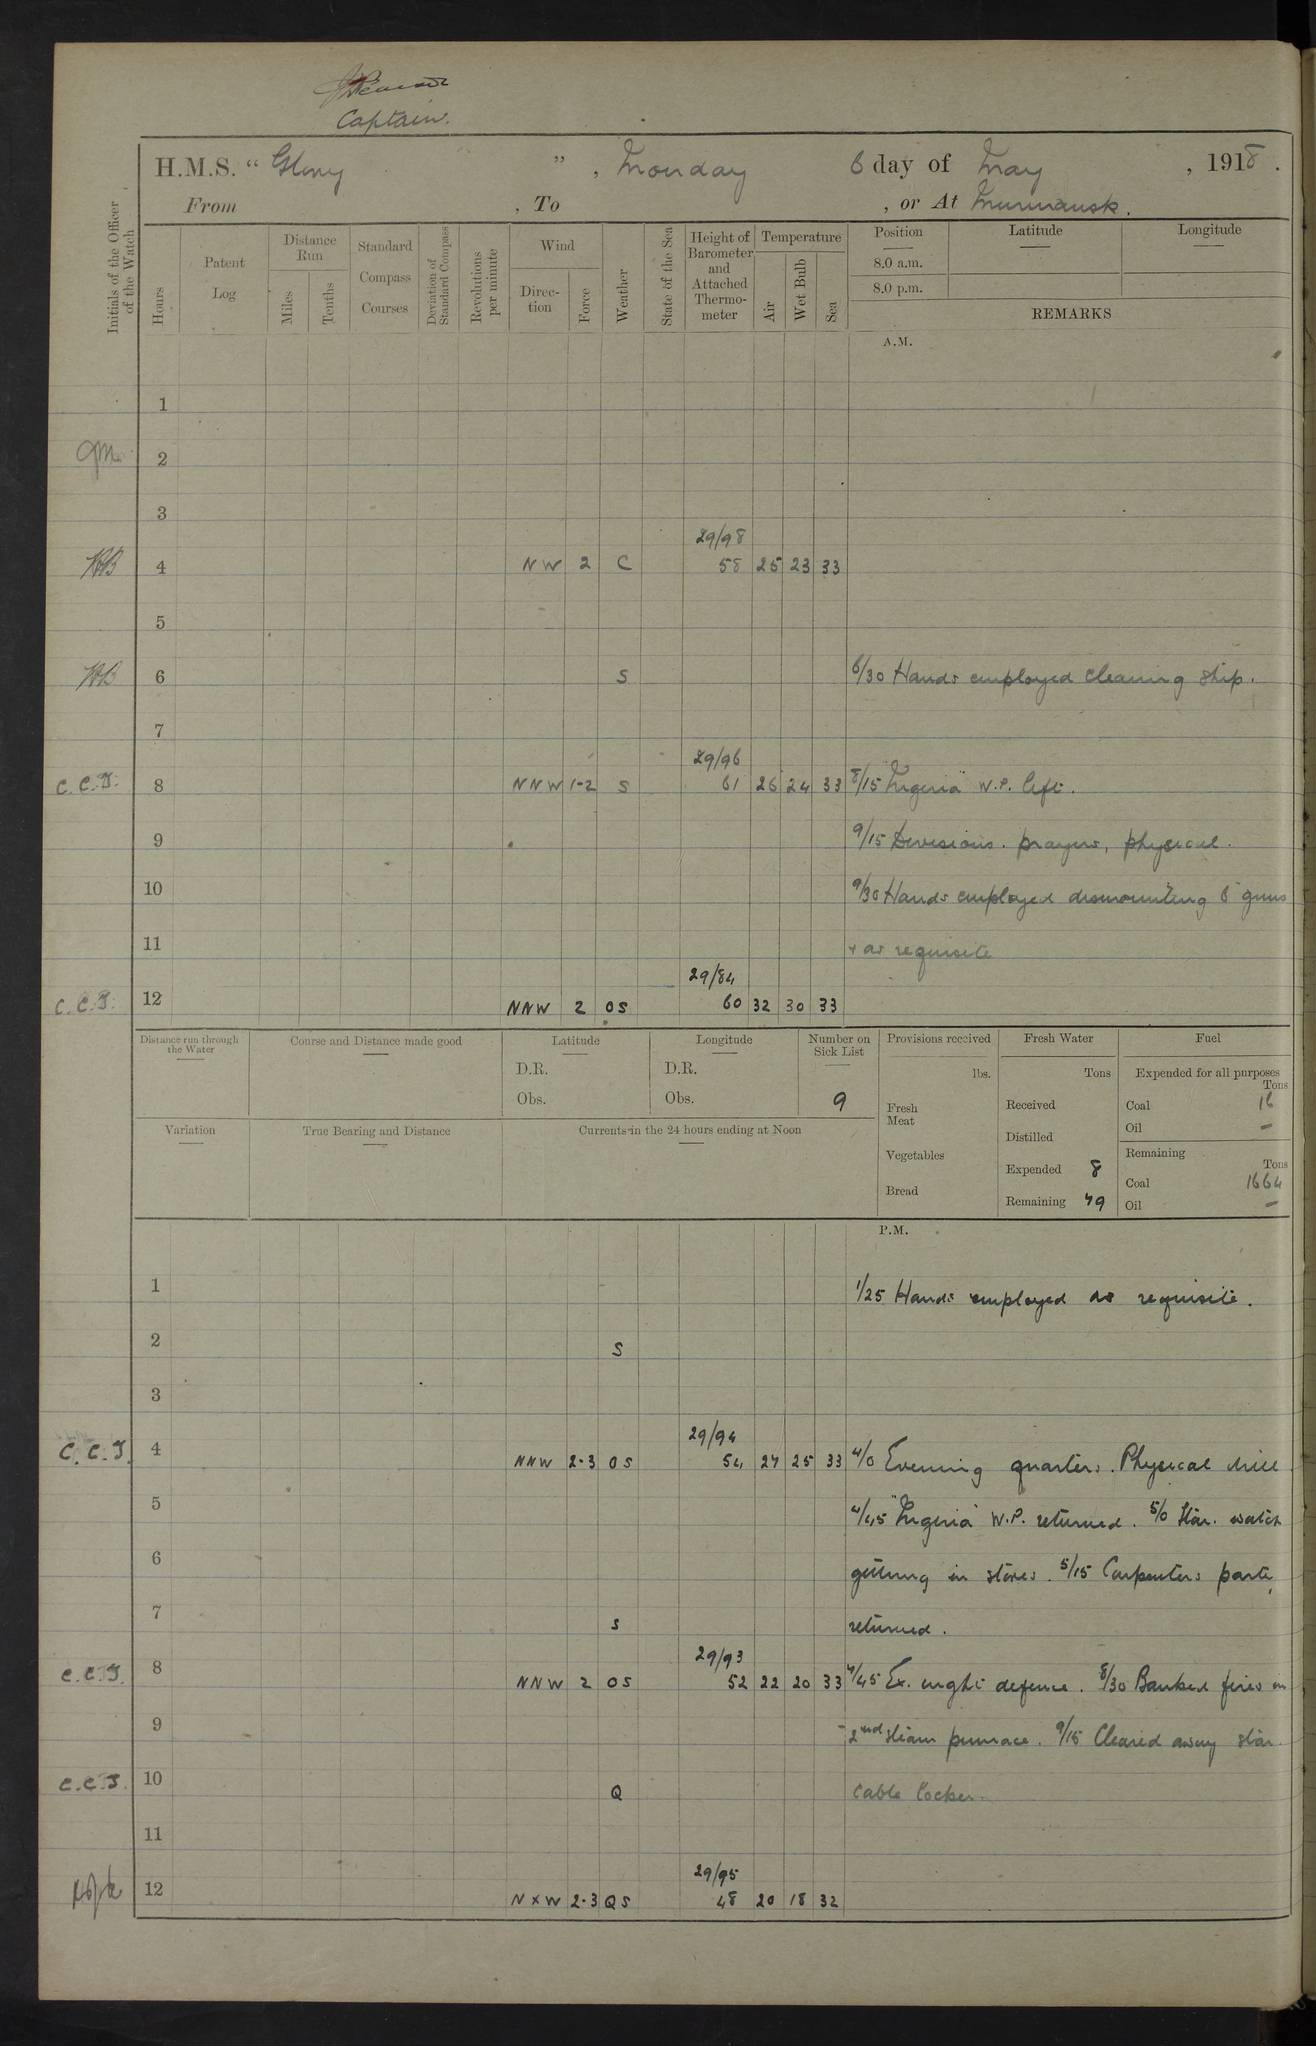 Captain.
H.M.S. " Glory ", Monday 6 day of May, 1918.
From , To , or At Murmansk.
Initials of the Officer of the Watch
Hours
Patent Log
Distance Run
Miles
Tenths
Standard Compass Courses
Deviation of Standard Compass
Revolutions per minute
Wind
Direction
Force
Weather
State of the Sea
Height of Barometer and Attached Thermometer
Temperature
Air
Wet Bulb
Sea
Position
8.0 a.m.
8.0 p.m.
Latitude
Longitude
REMARKS
A.M.
1
2
3
29/98
4 NW 2 C 58 25 23 33
5
6 S 6/30 Hands employed cleaning ship.
7
29/96
C.C.J. 8 NNW 1-2 S 61 26 24 33 8/15 W.P. left.
9 9/15 Divisions. prayers, physical.
10 9/30 Hands employed dismounting 6" guns
11 + as requisite
29/84
C.C.J. 12 NNW 2 OS 60 32 30 33
Distance run through the Water
Course and Distance made good
Latitude
D.R.
Obs.
Longitude
D.R.
Obs.
Number on Sick List
9
Provisions received
lbs.
Fresh Meat
Vegetables
Bread
Fresh Water
Tons
Received
Distilled
Expended 8
Remaining 49
Fuel
Expended for all purposes
Tons
Coal 16
Oil –
Remaining
Tons
Coal 1664
Oil –
Variation
True Bearing and Distance
Currents in the 24 hours ending at Noon
P.M.
1 1/25 Hands employed as requisite.
2 S
3
29/94
C.C.J. 4 NNW 2-3 OS 54 27 25 33 4/0 Evening quarters. Physical drill
5 4/45 W.P. returned. 5/0 Star. watch
6 getting in stores. 5/15 Carpenters party
7 S returned.
29/93
C.C.J. 8 NNW 2 OS 52 22 20 33 7/45 Ex. night defence. 8/30 Banked fires in
9 2nd steam pinnace. 9/15 Cleared away star.
C.C.J. 10 Q cable locker.
11
29/95
12 NxW 2-3 QS 48 20 18 32